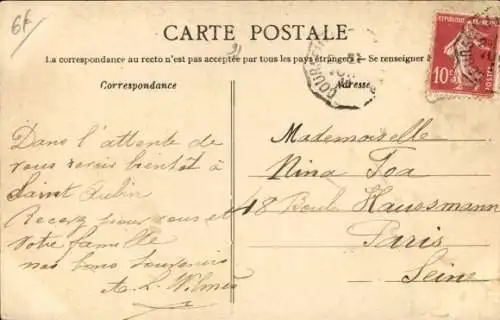 6f
CARTE POSTALE
21
La correspondance au recto n'est pas acceptée par tous les pays étrangers — Se renseigner
Correspondance
Adresse
REPUBLIQUE
10c
POSTES
Dans l'attente de
vous revoir bientôt à
Saint Aubin
Recevez pour vous et
votre famille
nos bons souvenirs
A. L. Wilmes
Mademoiselle
Nina Foa
48 Boul. Haussmann
Paris
Seine